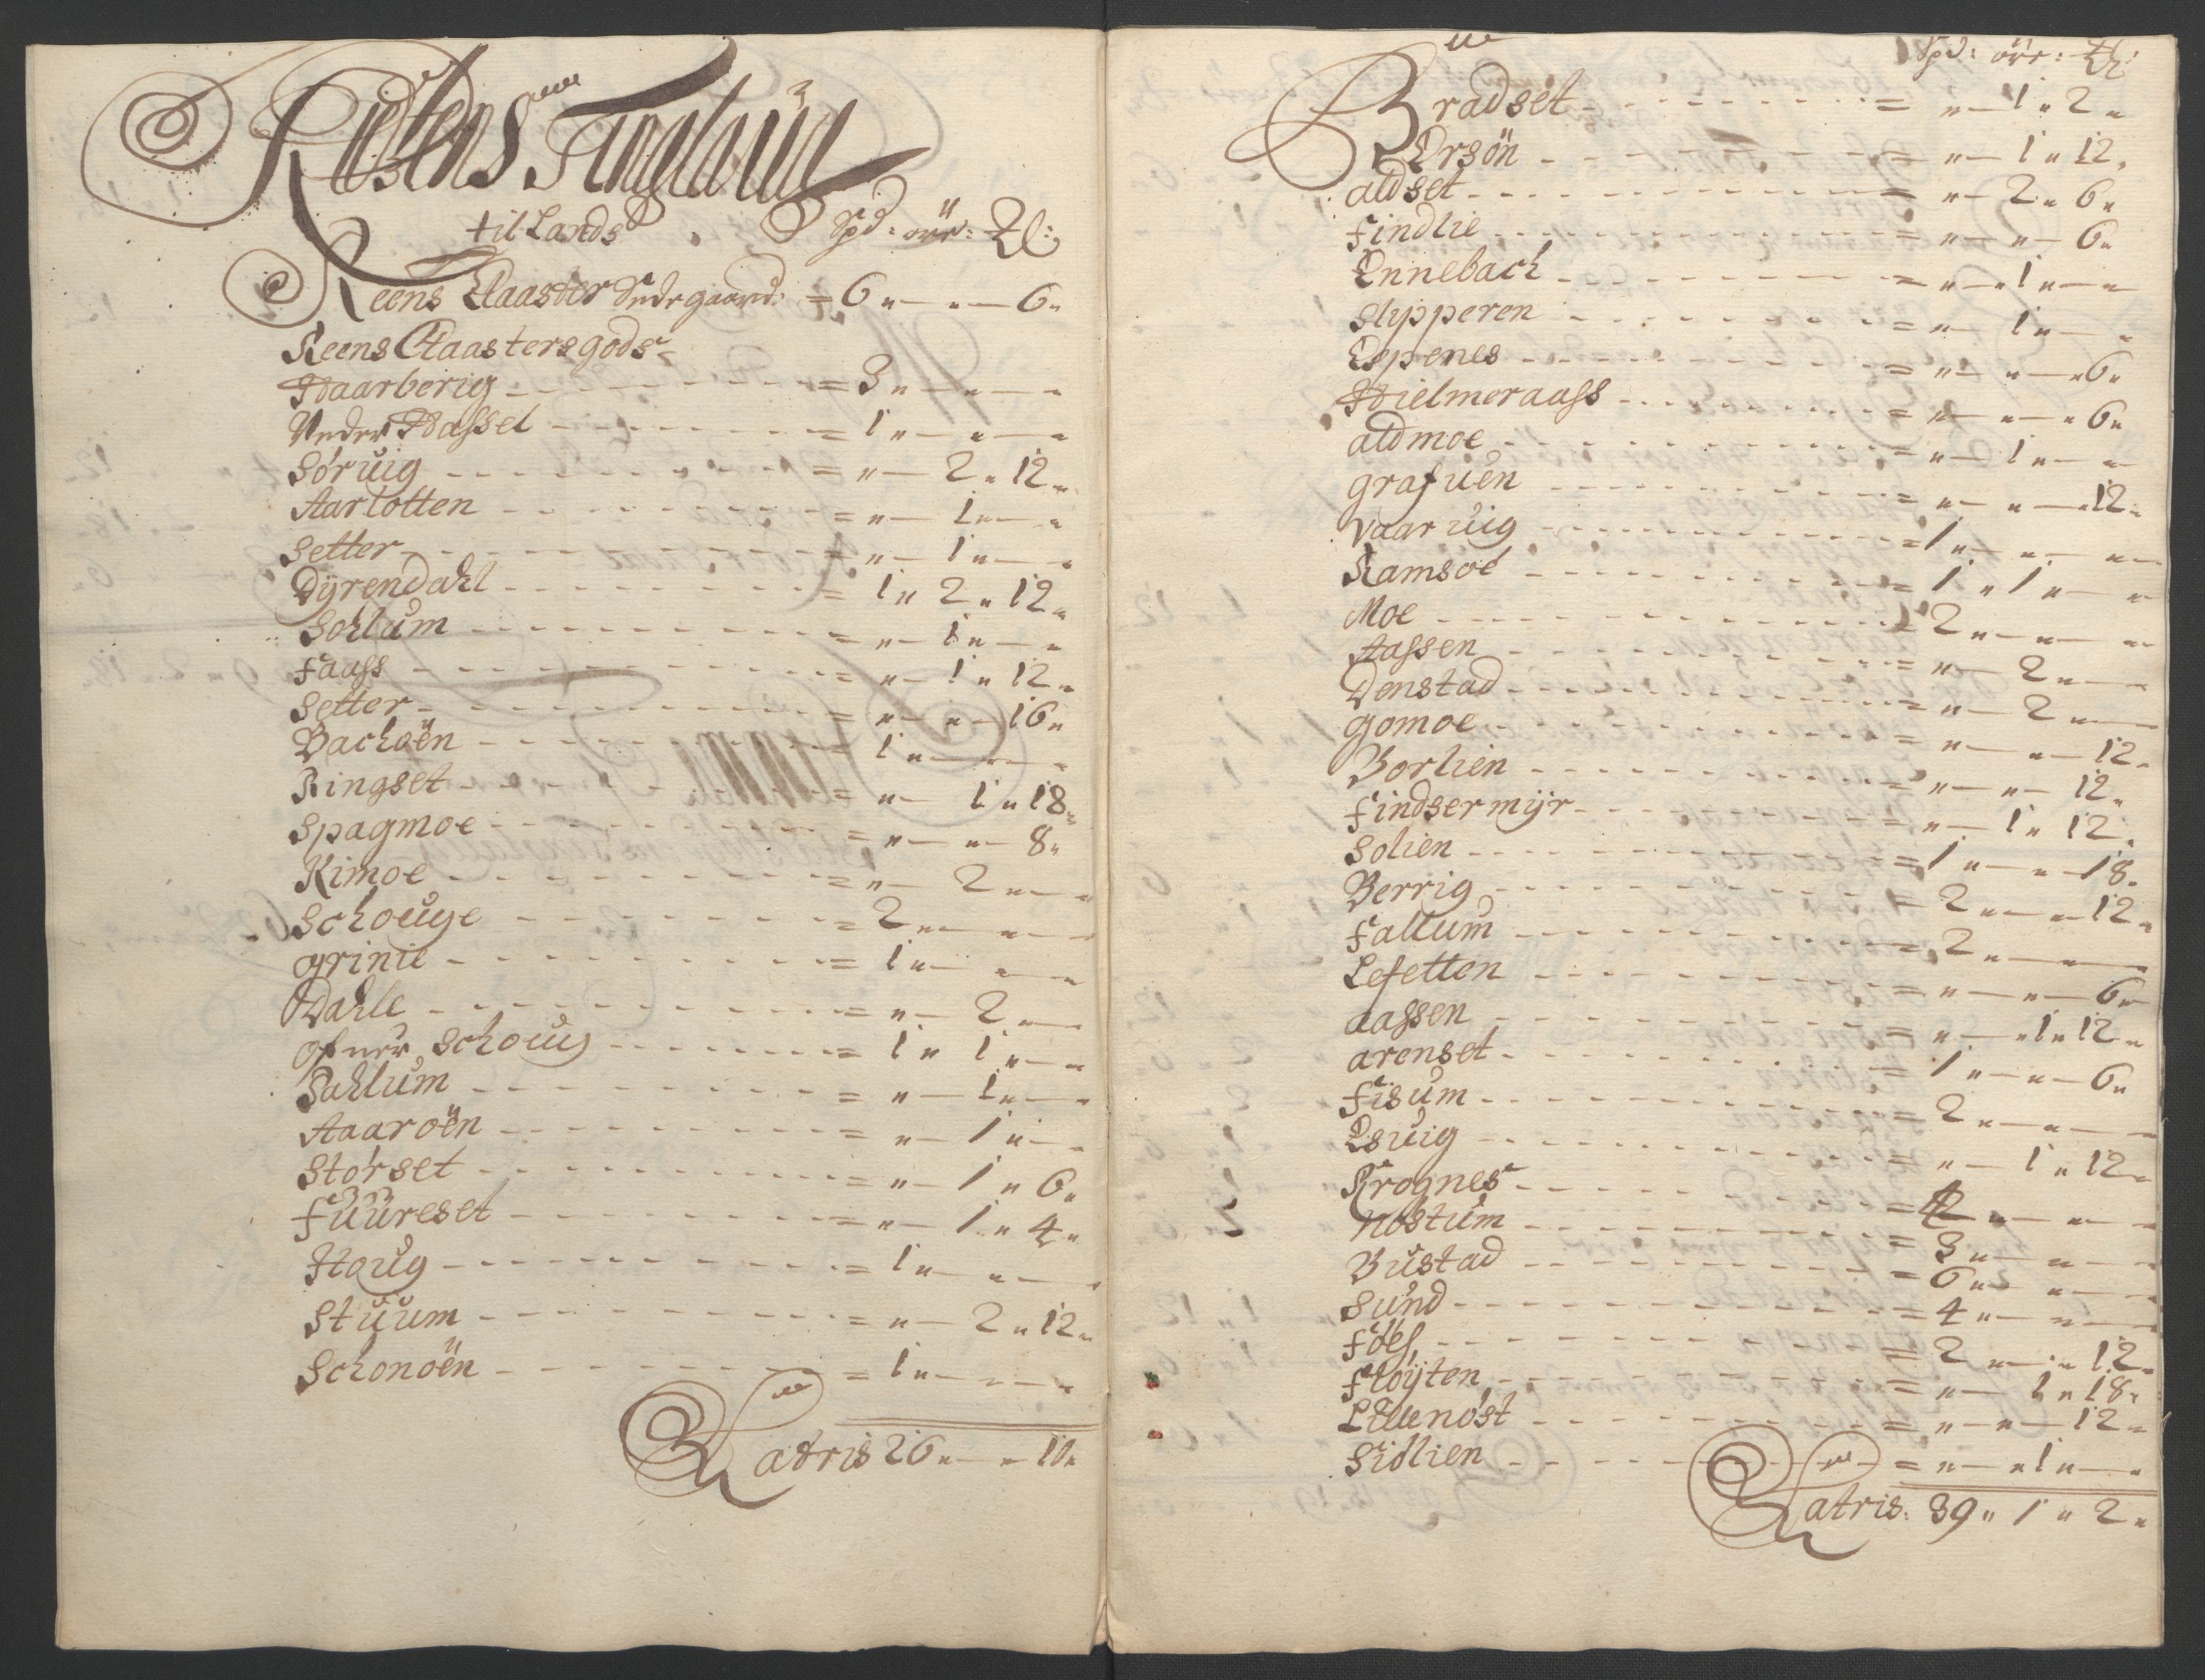 Rissens Tinglaug
til Lands Spd: ører: Ml:
Reens Claaster Sædegaard: = 6 „ — „ — 6 „
Reens Claasters gods
Haarberig = 3 „ — „ — „
Neder Hassel = 1 „ — „ — „
Sørvig = „ — 2 „ 12 „
Aarlotten = „ — 1 „ — „
Setter = „ — 1 „ — „
Dÿrendahl = 1 „ 2 „ 12 „
Sohlum = „ — 1 „ — „
Faass = „ — 1 „ 12 „
Setter = „ — „ — 16 „
Bachøen = 1 „ — „ — „
Ringset = „ — 1 „ 18 „
Spagmoe = „ — „ — 8 „
Kimoe = „ — 2 „ — „
Schouge = 2 „ — „ — „
grinie = 1 „ — „ — „
Dahle = „ — 2 „ — „
ofuer Schoug = 1 „ 1 „ — „
Sahlum = „ — 1 „ — „
Aaarøen = „ — 1 „ — „
Størset = „ — 1 „ 6 „
Fuureset = „ — 1 „ 4 „
Houg = 1 „ — „ — „
Stuum = „ — 2 „ 12 „
Schonøen = 1 „ — „ — „
Latris 26 „ — „ — 10 „
Spd: ører: Ml:
Bradset = „ — 1 „ 2 „
Ørsøn = „ — 1 „ 12 „
aldset = „ — 2 „ 6 „
Findlie = „ — „ — 6 „
Ennebach = „ — „ 1 „ — „
Slipperen = „ — 1 „ — „
Espenes = „ — „ — „ 6 „
Hielmeraass = „ — „ — „ 6 „
aldmoe = „ — 1 „ — „
grafuen = „ — „ — „ 12 „
Vaarvig = 1 „ — „ — „
Ramsoe = 1 „ 1 „ — „
Moe = 2 „ — „ — „
Aassen = „ — 2 „ — „
Denstad = „ — 2 „ — „
gomoe = „ — „ — 12 „
Borlien = „ — „ — 12 „
Findsermÿr = „ — 1 „ 12 „
Solien = 1 „ — „ — 18 „
Berrig = 2 „ — „ — 12 „
Fallum = 2 „ — „ — „
Lefetten = „ — „ — 6 „
aassen = „ — „ 1 „ 12 „
arenset = 1 „ — „ — 6 „
Fisum = 2 „ — „ — „
Esvig = „ — 1 „ 12 „
Krognes = 4 „ — „ — „
Nøstum = 3 „ — „ — „
Bustad = 6 „ — „ — „
Sund = 4 „ — „ — „
Føes = 2 „ — „ 12 „
Fløÿten = „ — 1 „ 18 „
Lillenøst = „ — „ — 12 „
Sidlien = „ — „ 1 „ — „
Latris: 39 „ 1 „ 2 „